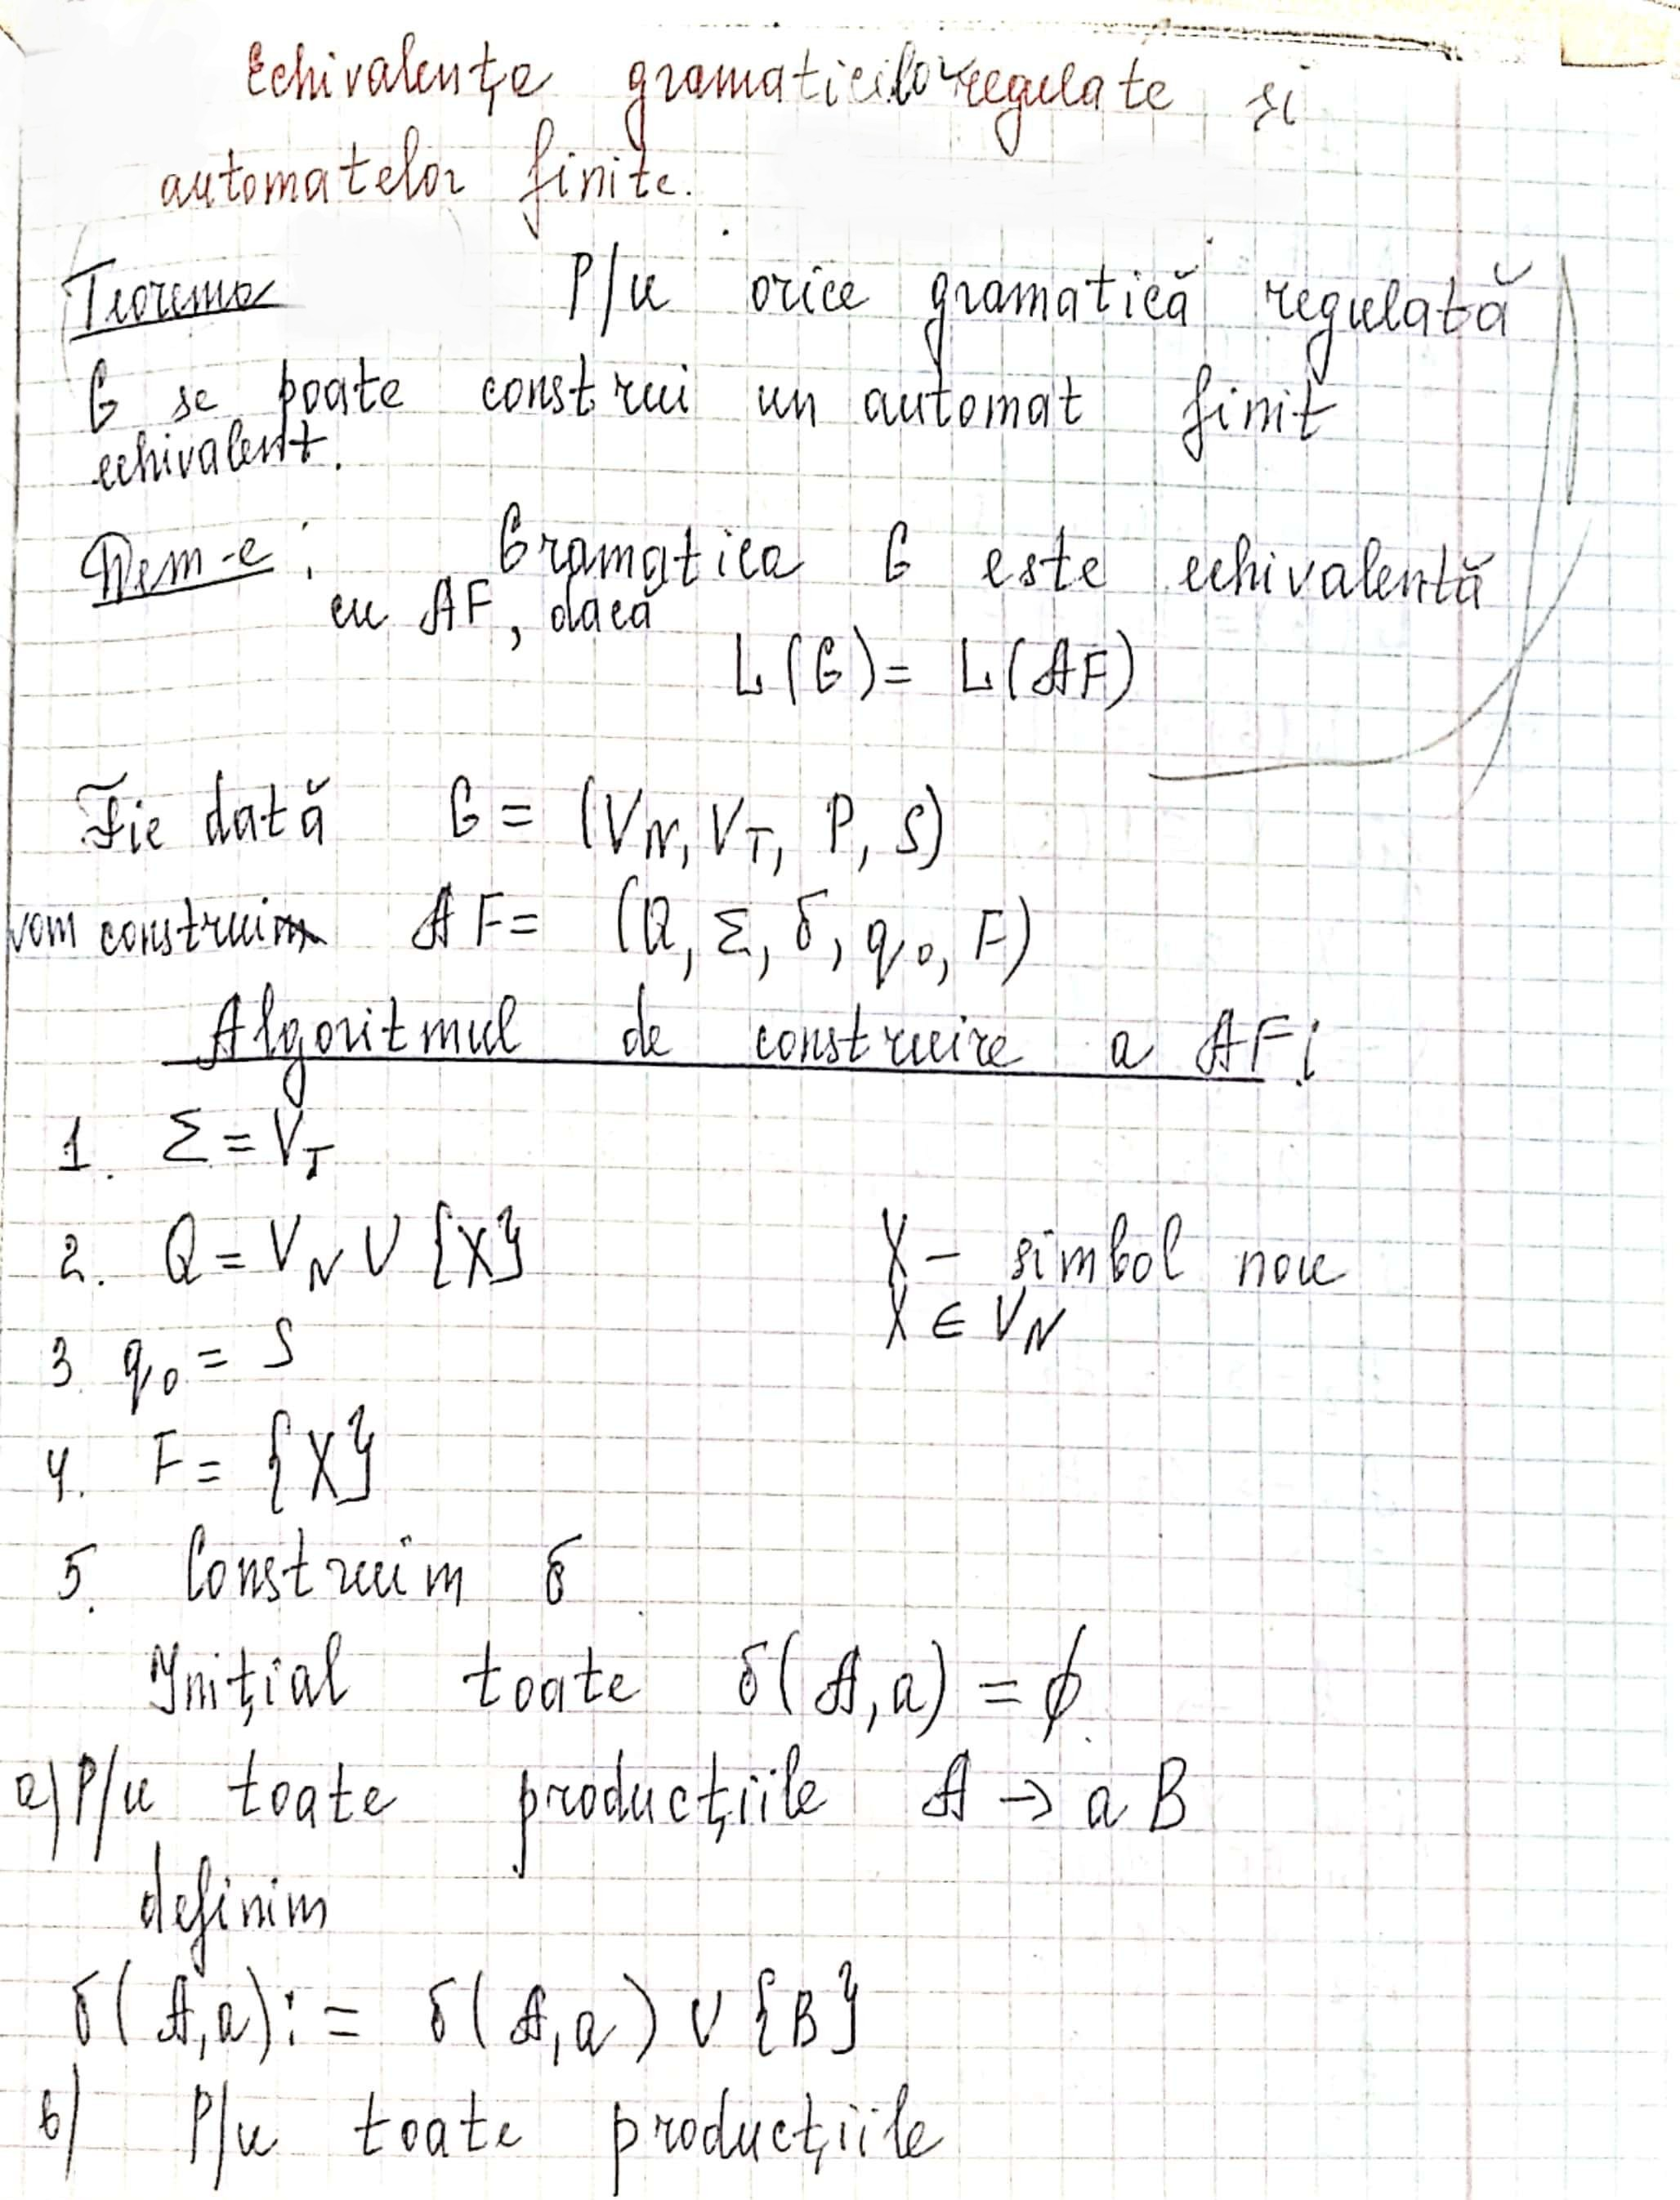 Echivalența gramaticilor regulate si
automatelor finite.
Teorema P/u orice gramatică regulată
G se poate construi un automat finit
echivalent.
Dem-e: Gramatica G este echivalentă
cu AF, dacă
L(G) = L(AF)
Fie dată G = (V_N, V_T, P, S)
vom construim AF = (Q, Σ, δ, q_0, F)
Algoritmul de construire a AF:
1. Σ = V_T
2. Q = V_N ∪ {X} X – simbol nou
X ∈ V_N
3. q_0 = S
4. F = {X}
5. Construim δ
Inițial toate δ(A, a) = ∅
a) P/u toate producțiile A → a B
definim
δ(A, a) := δ(A, a) ∪ {B}
b) P/u toate producțiile